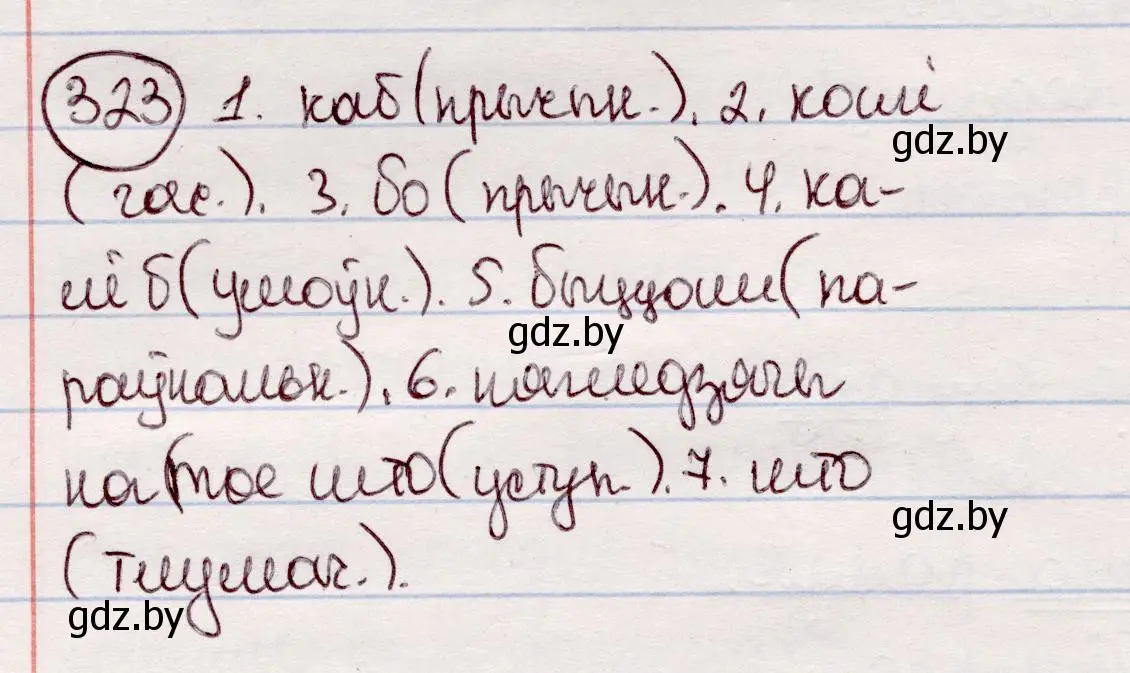 323 1. каб (прычын.). 2. калі
gdz.by
(час.). 3. бо (прычын.). 4. ка-
лі б (умоўн.). 5. быццам (па-
gdz.by
раўнальн.). 6. нягледзячы
на тое што (уступ.). 7. што
gdz.by
(тлумач.).
gdz.by